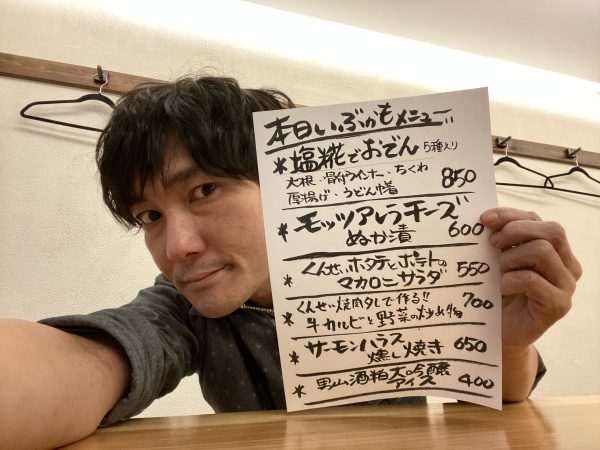 本日いぶかもメニュー
*塩糀でおでん 5種入り
大根・骨付ウインナー・ちくわ
厚揚げ・うどん巾着 850
*モッツアレラチーズ
ぬか漬 600
*くんせいホタテとポテトの
マカロニサラダ 550
*くんせい焼肉タレで作る!!
牛カルビと野菜の炒め物 700
*サーモンハラス
燻し焼き 650
*男山酒粕大吟醸
アイス 400